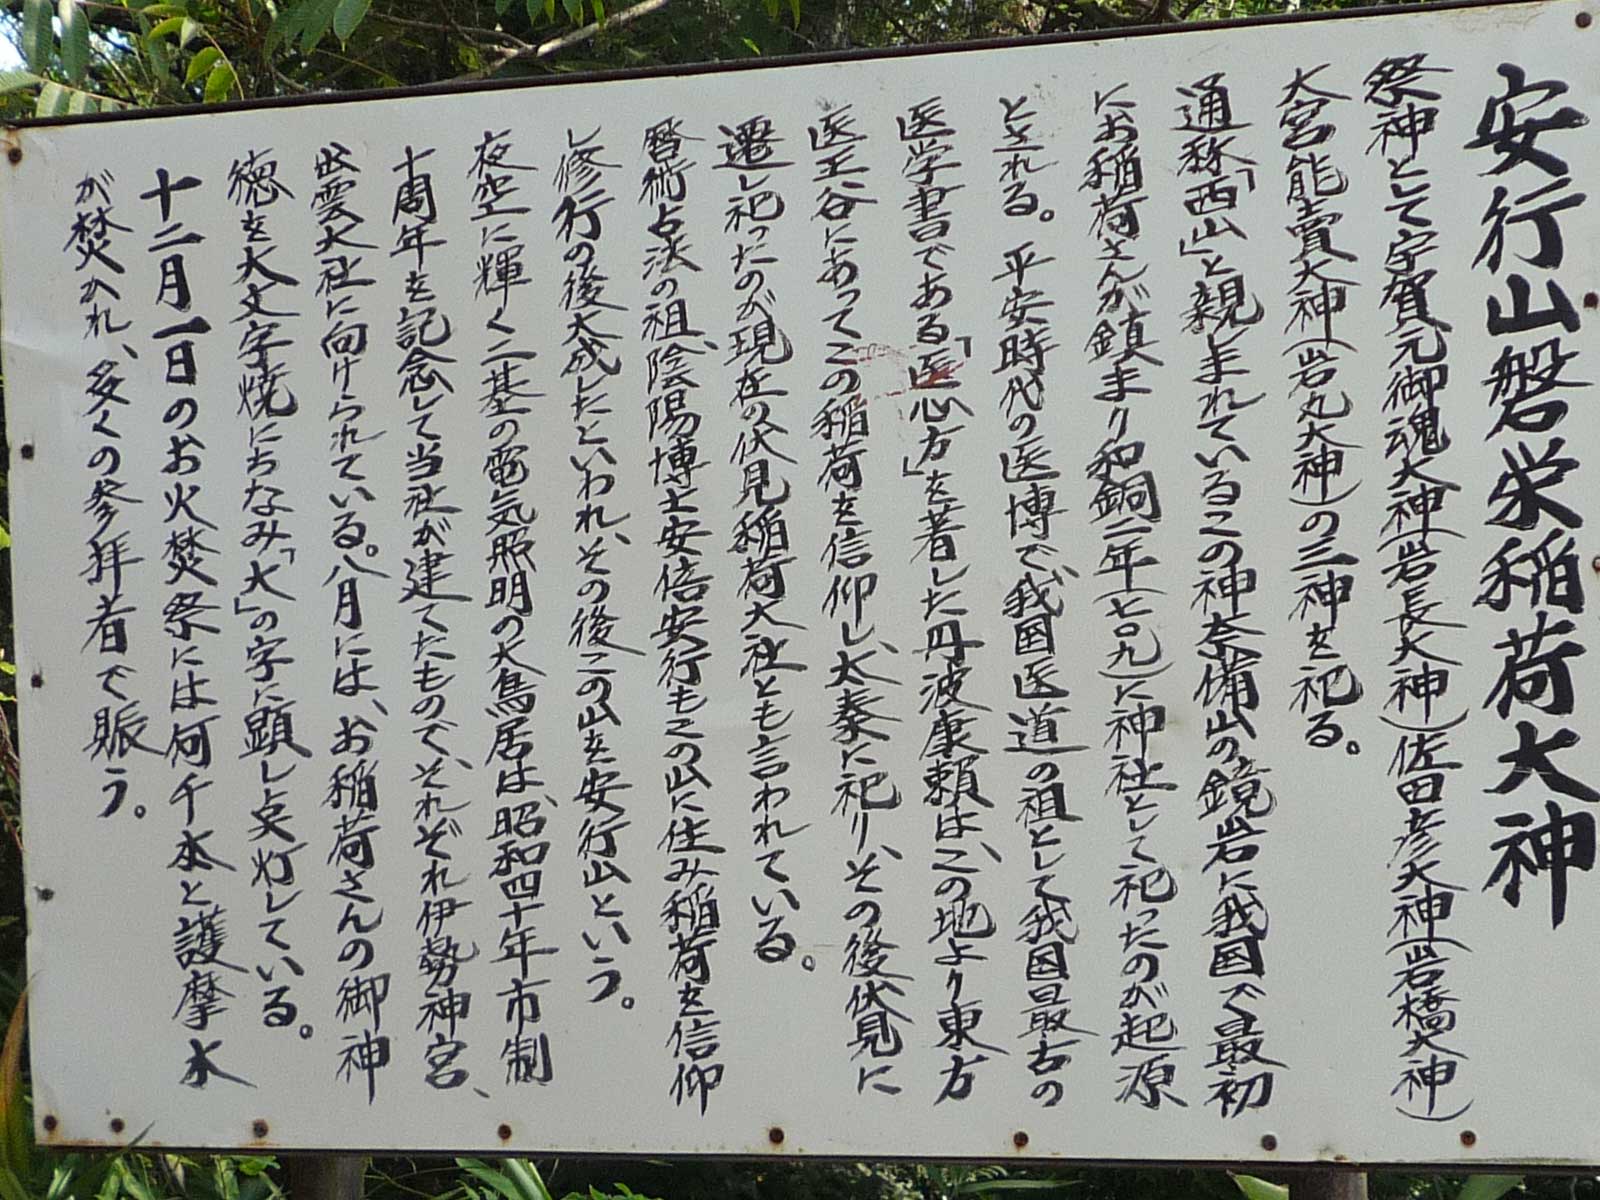 安行山磐栄稲荷大神
祭神として宇賀元御魂大神(岩長大神)佐田彦大神(岩橋大神)
大宮能賣大神(岩丸大神)の三神を祀る。
通称「西山」と親しまれているこの神奈備山の鏡岩に我国で最初
にお稲荷さんが鎮まり和銅二年(七〇九)に神社として祀ったのが起源
とされる。平安時代の医博で、我国医道の祖として我国最古の
医学書である「医心方」を著した丹波康頼は、この地より東方
医王谷にあってこの稲荷を信仰し、太秦に祀り、その後伏見に
遷し祀ったのが現在の伏見稲荷大社とも言われている。
暦術占法の祖、陰陽博士安倍安行もこの山に住み稲荷を信仰
し修行の後大成したといわれ、その後この山を安行山という。
夜空に輝く二基の電気照明の大鳥居は、昭和四十年市制
十周年を記念して当社が建てたもので、それぞれ伊勢神宮、
出雲大社に向けられている。八月には、お稲荷さんの御神
徳を大文字焼にちなみ「大」の字に顕し点灯している。
十二月一日のお火焚祭には何千本と護摩木
が焚かれ、多くの参拝者で賑う。